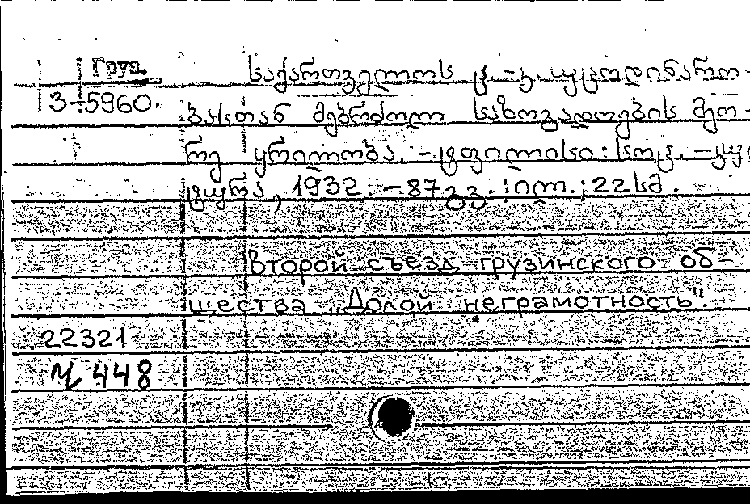 Груз.
3-5960.
საქართველოს
ბასთან მებრძოლ საზოგადოების მეო-
რე ყრილობა. – ტფილისი: სოც. –
ტურა, 1932. – 87 გვ.: ილ.; 22 სმ.
Второй съезд грузинского об-
щества "Долой неграмотность"
22321
448